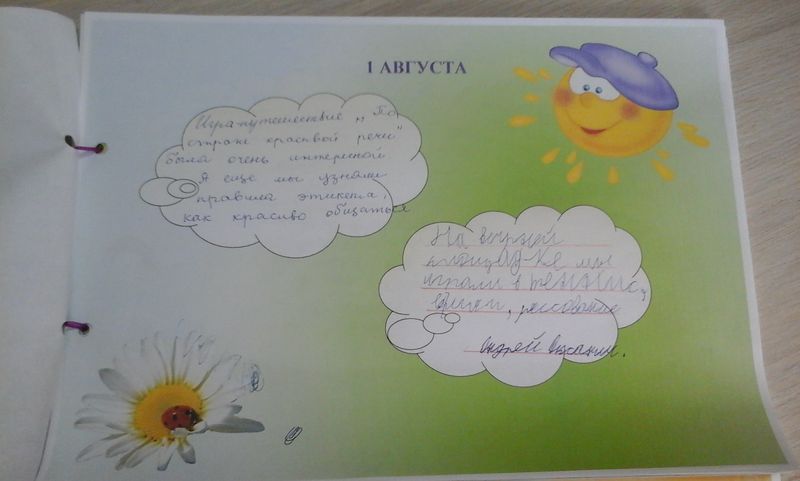 1 АВГУСТА
Игра-путешествие „По
стране красивой речи"
была очень интересной
А еще мы узнали
правила этикета,
как красиво общаться
На
площад-ке мы
играли в теннис,
рисование
Андрей